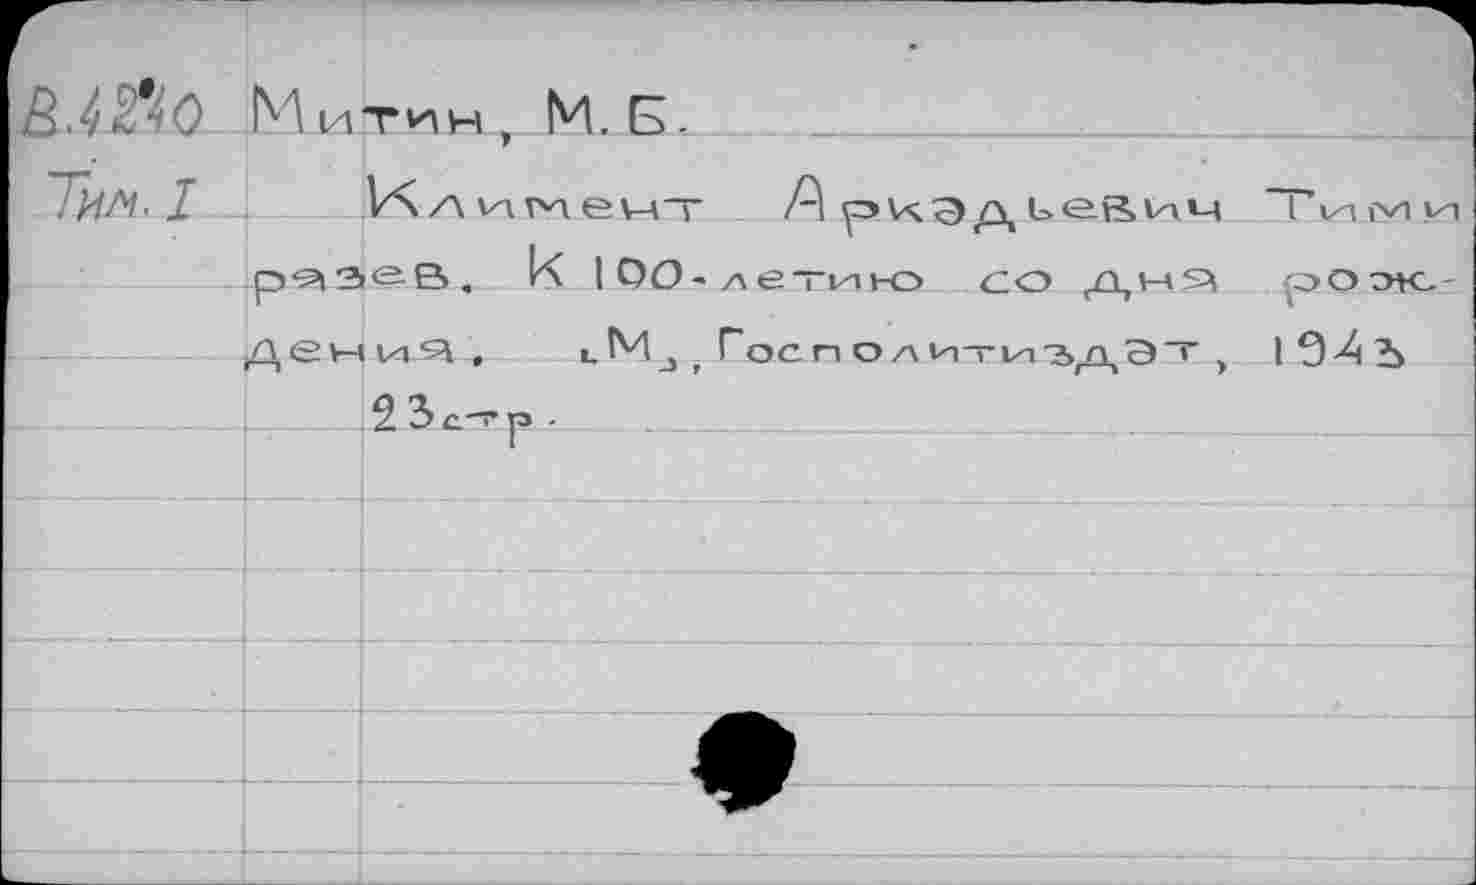 Митин, М. Б.
Тим. I Климент Аркадьевич Тими
рязев. К 100-летию со дня рож-
дения. [М], Госполитиздат, 1943
23 стр.